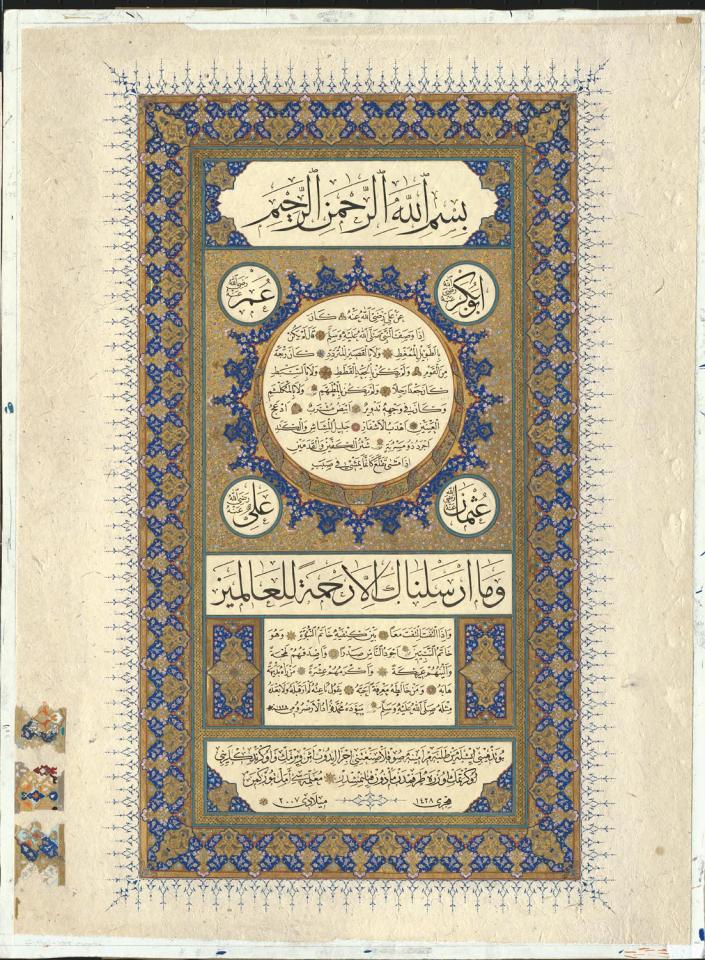 بسم الله الرحمن الرحيم
ابوبكر رضي الله عنه
عمر رضي الله عنه
عن علي رضي الله عنه كان
اذا وصف النبي صلى الله عليه وسلم قال لم يكن
بالطويل الممغط ولا بالقصير المتردد كان ربعة
من القوم ولم يكن بالجعد القطط ولا بالسبط
كان جعدا رجلا ولم يكن بالمطهم ولا بالمكلثم
وكان في وجهه تدوير ابيض مشرب ادعج
العينين اهدب الاشفار جليل المشاش والكتد
اجرد ذو مسربة شثن الكفين والقدمين
اذا مشى تقلع كانما يمشي في صبب
عثمان رضي الله عنه
علي رضي الله عنه
وما ارسلناك الا رحمة للعالمين
واذا التفت التفت معا بين كتفيه خاتم النبوة وهو
خاتم النبيين اجود الناس صدرا واصدقهم لهجة
والينهم عريكة واكرمهم عشرة من رآه بديهة
هابه ومن خالطه معرفة احبه يقول ناعته لم ار قبله ولا بعده
مثله صلى الله عليه وسلم
هجرى ١٤٢٨ ميلادى ٢٠٠٧